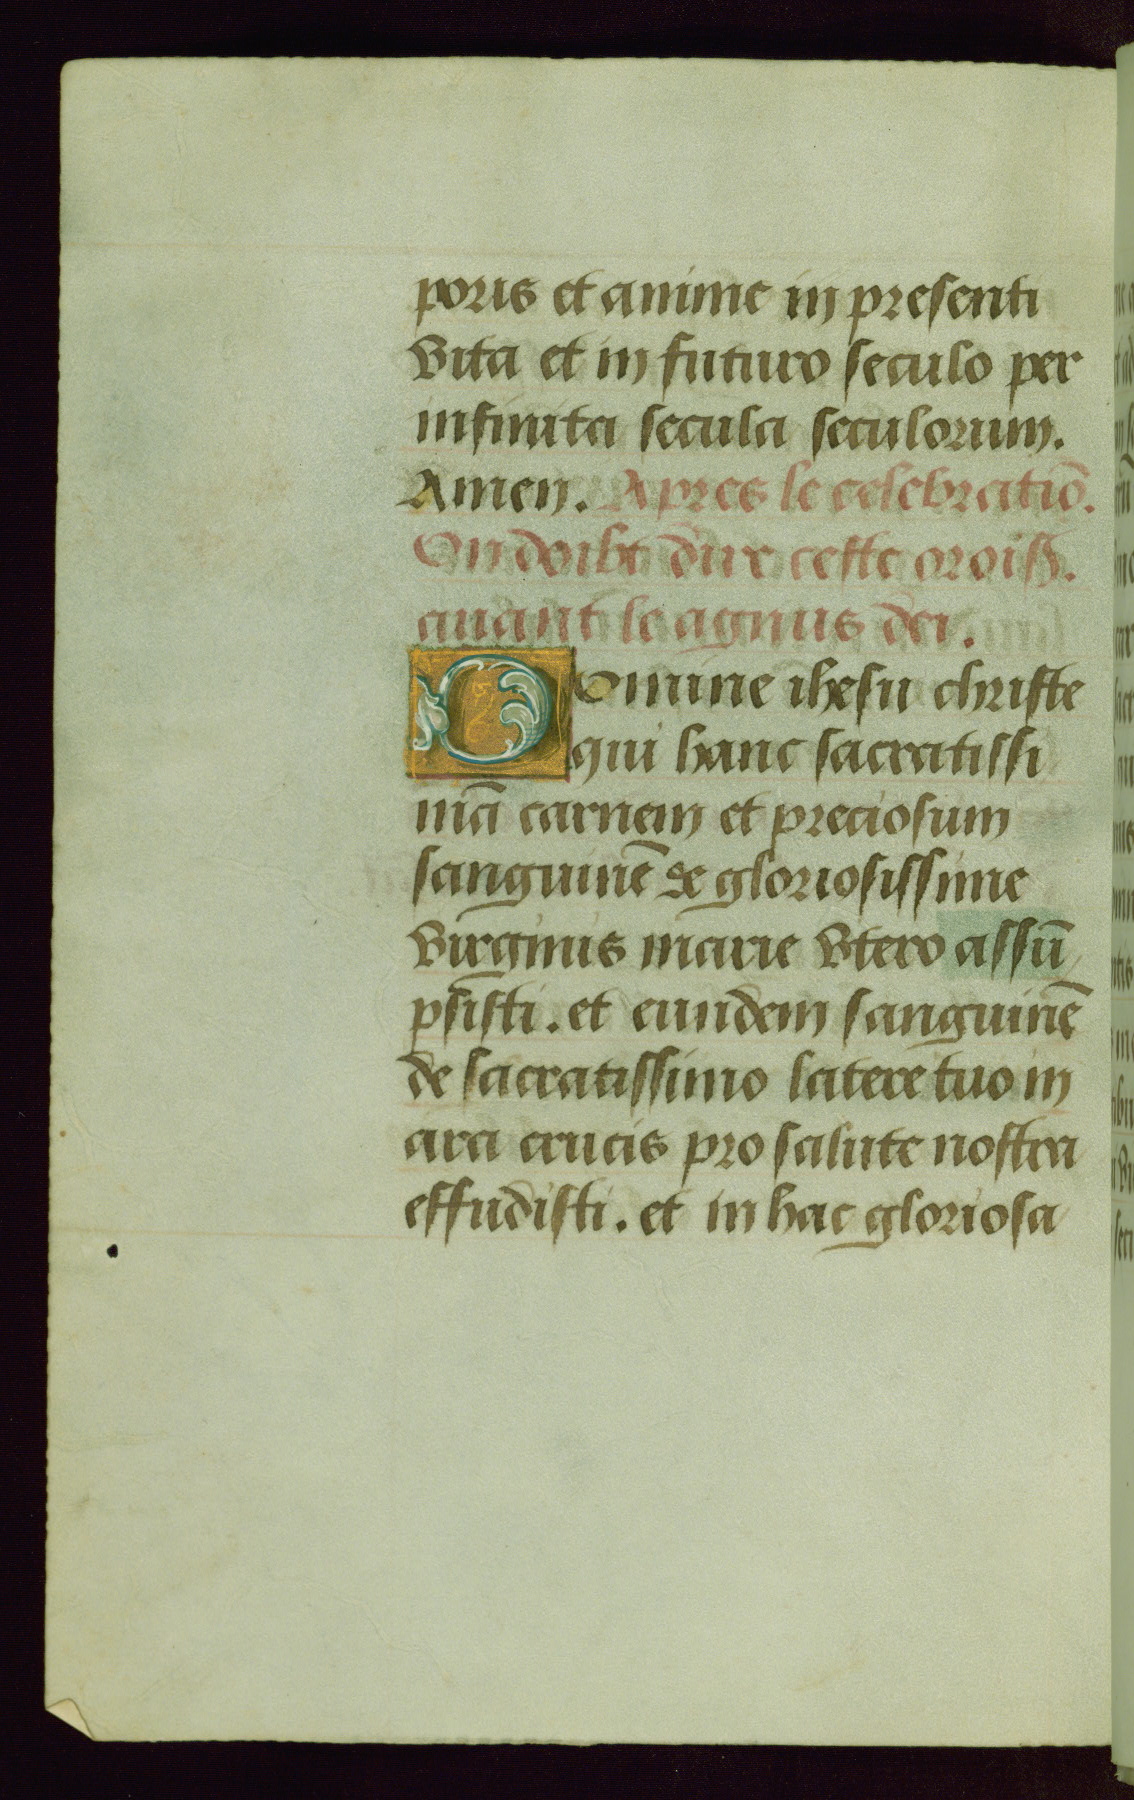 poris et anime in presenti
vita et in futuro seculo per
infinita secula seculorum.
Amen. Apres le celebratiō.
On doibt dire ceste oroiſō.
auant le agnus dei.
Domine ihesu christe
qui hanc sacratissi
mā carnem et preciosum
sanguinē de gloriosissime
virginis marie vtero assū
psisti. et eundem sanguinē
de sacratissimo latere tuo in
ara crucis pro salute nostra
effudisti. et in hac gloriosa